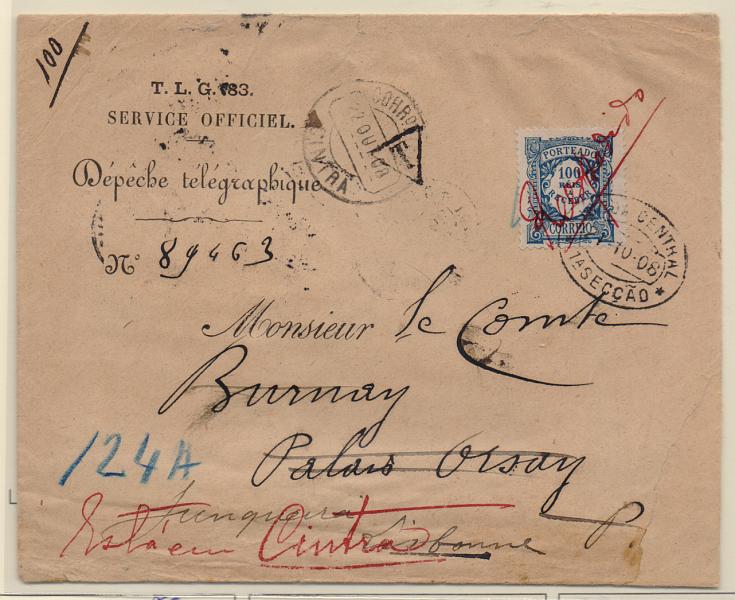 100
T. L. G. 83.
SERVICE OFFICIEL.
Dépêche télégraphique
Nº 89463
CORREIO
22 OUT 08
CINTRA
T
PORTEADO
100
REIS
A
RECEBER
CORREIO
CENTRAL
10-08
1ASECÇÃO *
Monsieur le Comte
Burnay
Palais Orsay
124A
Junqueira
Está em Cintra
Lisbonne P.